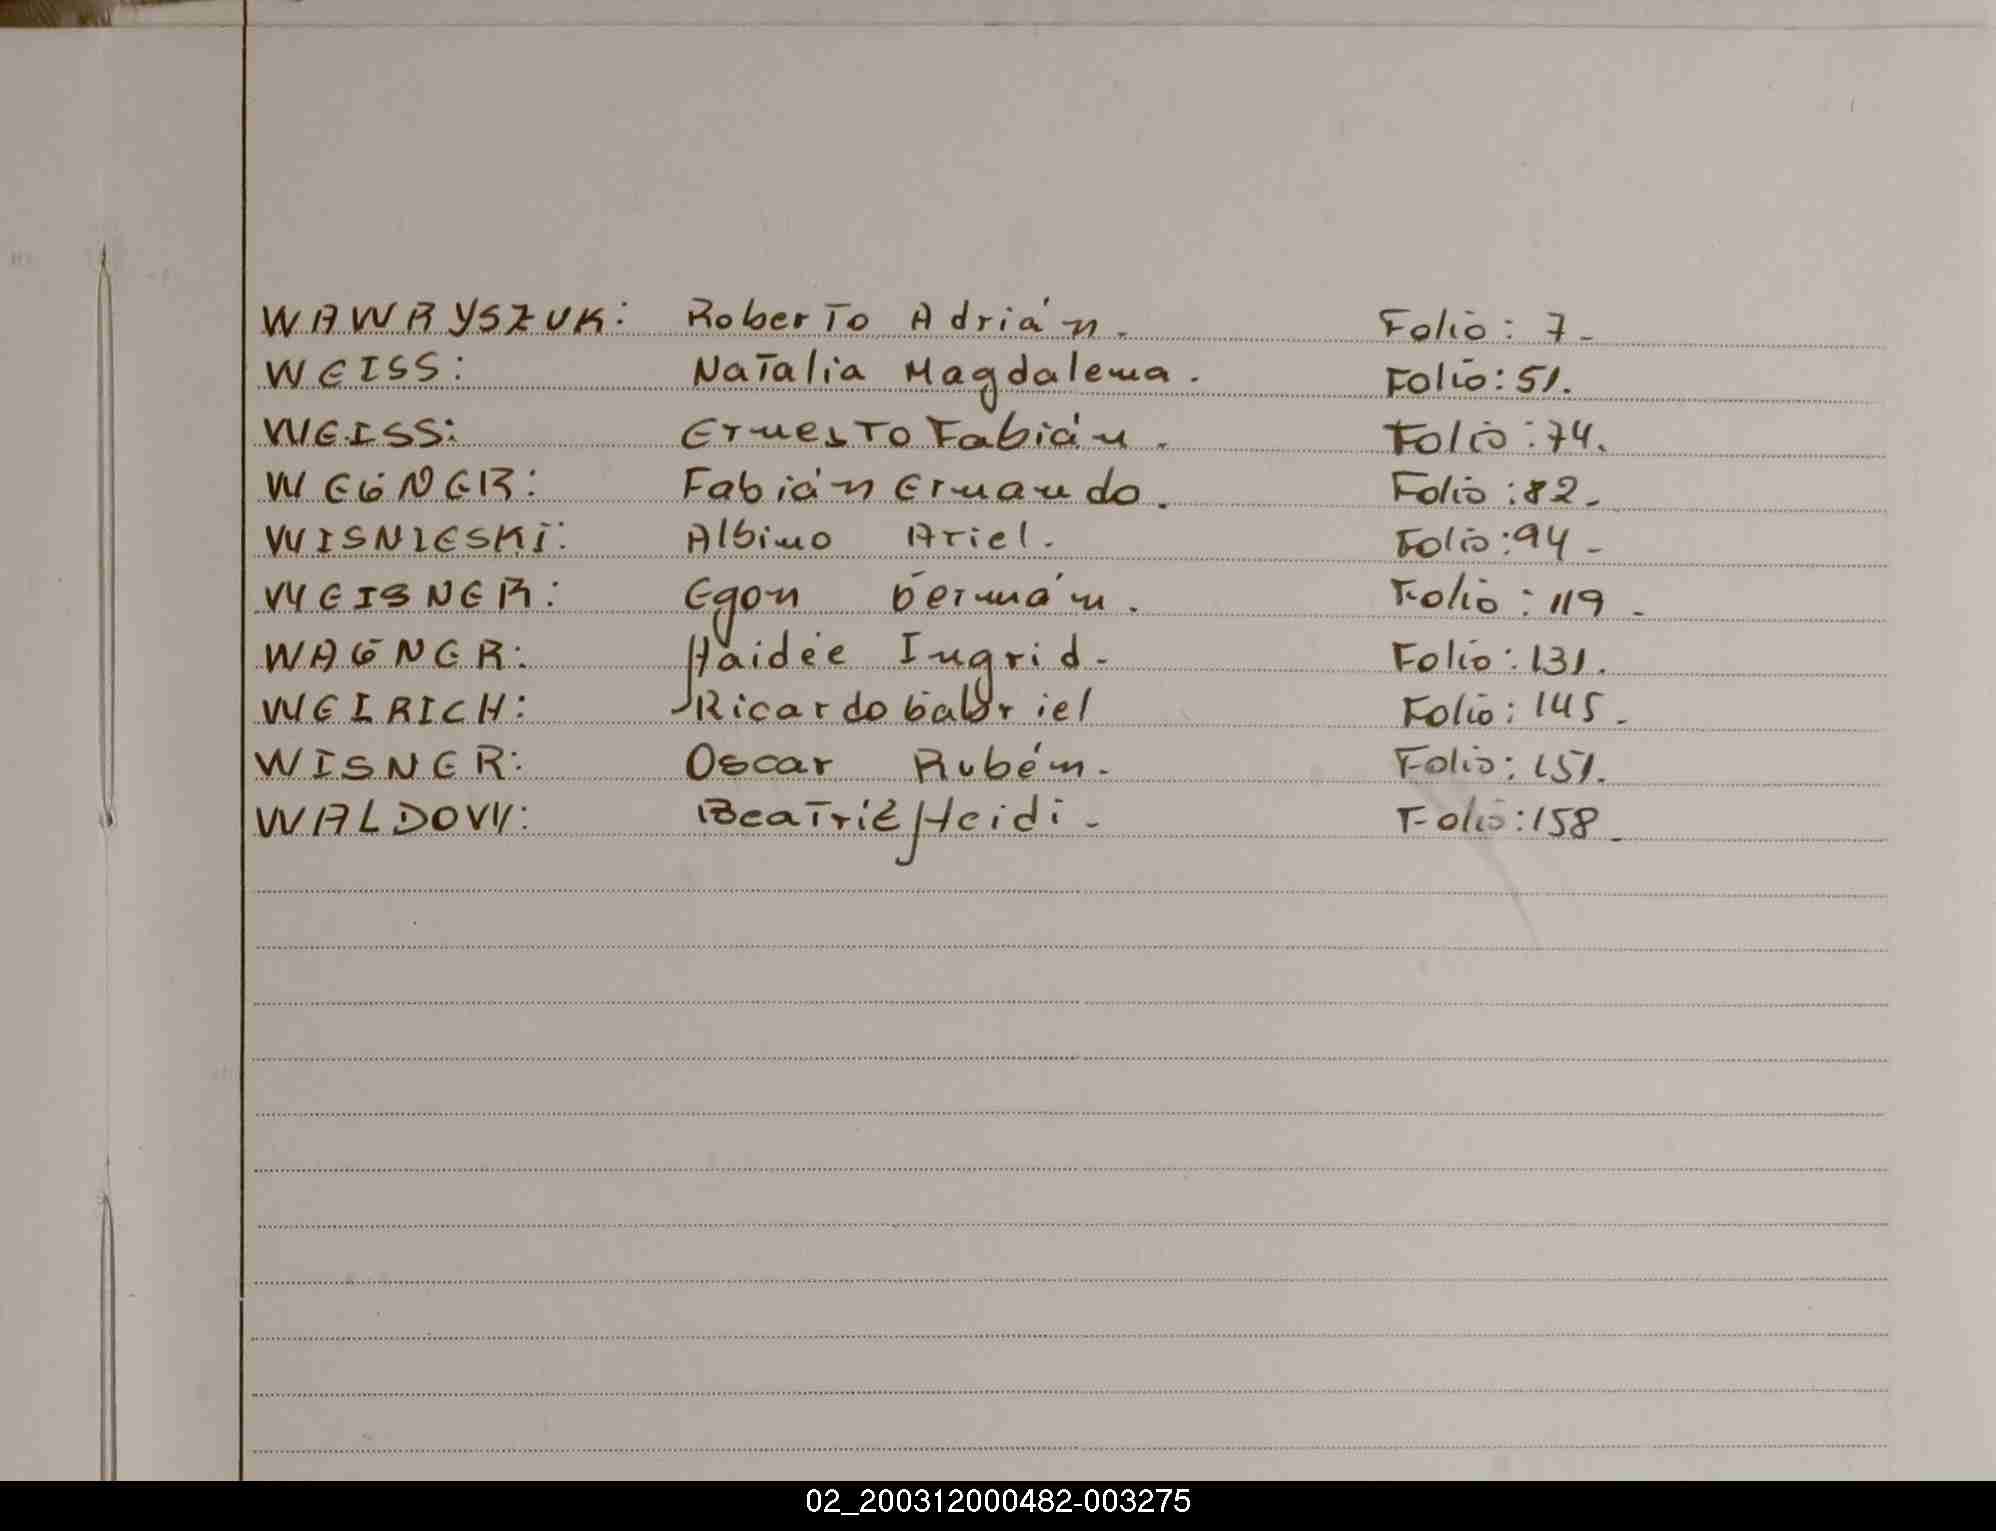 WAWRYSZUK: Roberto Adrián. Folio: 7-
WEISS: Natalia Magdalena. Folio: 51.
WEISS: Ernesto Fabián. Folio: 74.
WEGNER: Fabián Ernando. Folio: 82-
WISNIESKI: Albino Ariel. Folio: 94-
WEISNER: Egon Germán. Folio: 119-
WAGNER: Haidée Ingrid- Folio: 131.
WEIRICH: Ricardo Gabriel Folio: 145-
WISNER: Oscar Rubén- Folio: 151.
WALDOW: Beatriz Heidi- Folio: 158-
02_200312000482-003275